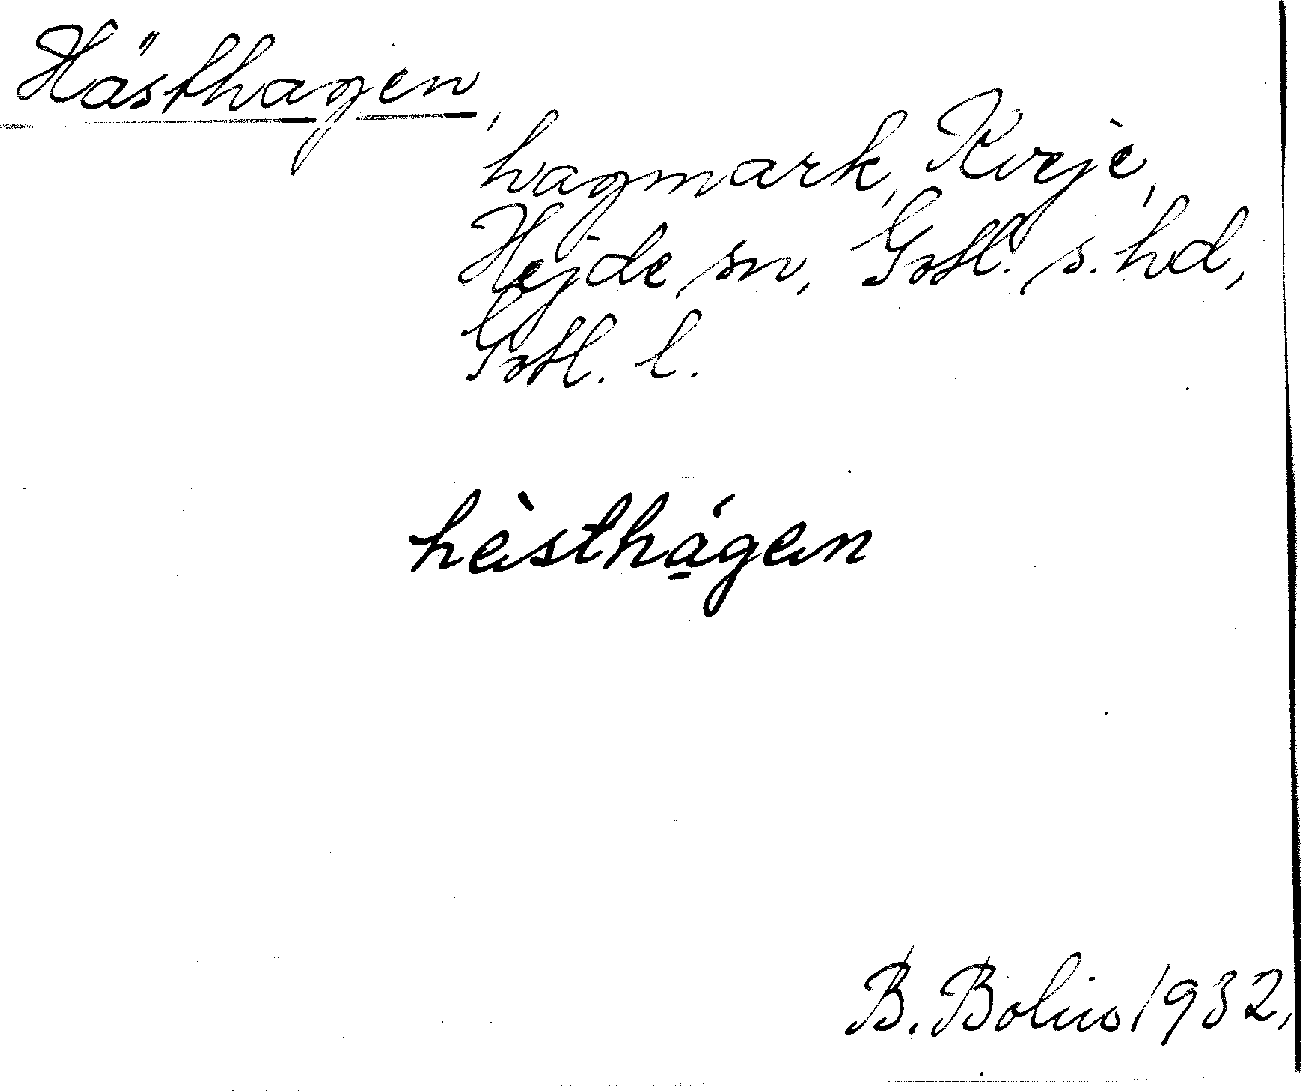 Hästhagen,
hagmark, Kvije,
Hejde sn, Gotl. s. hd,
Gotl. l.
hèsthágen
B. Bolin 1932.